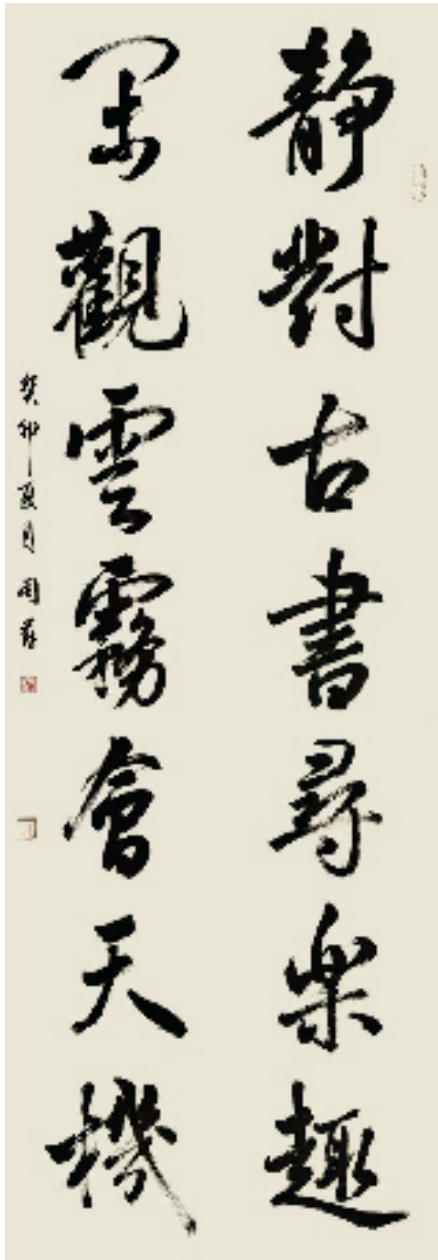 靜對古書尋樂趣
閑觀雲霧會天機
癸卯夏月周